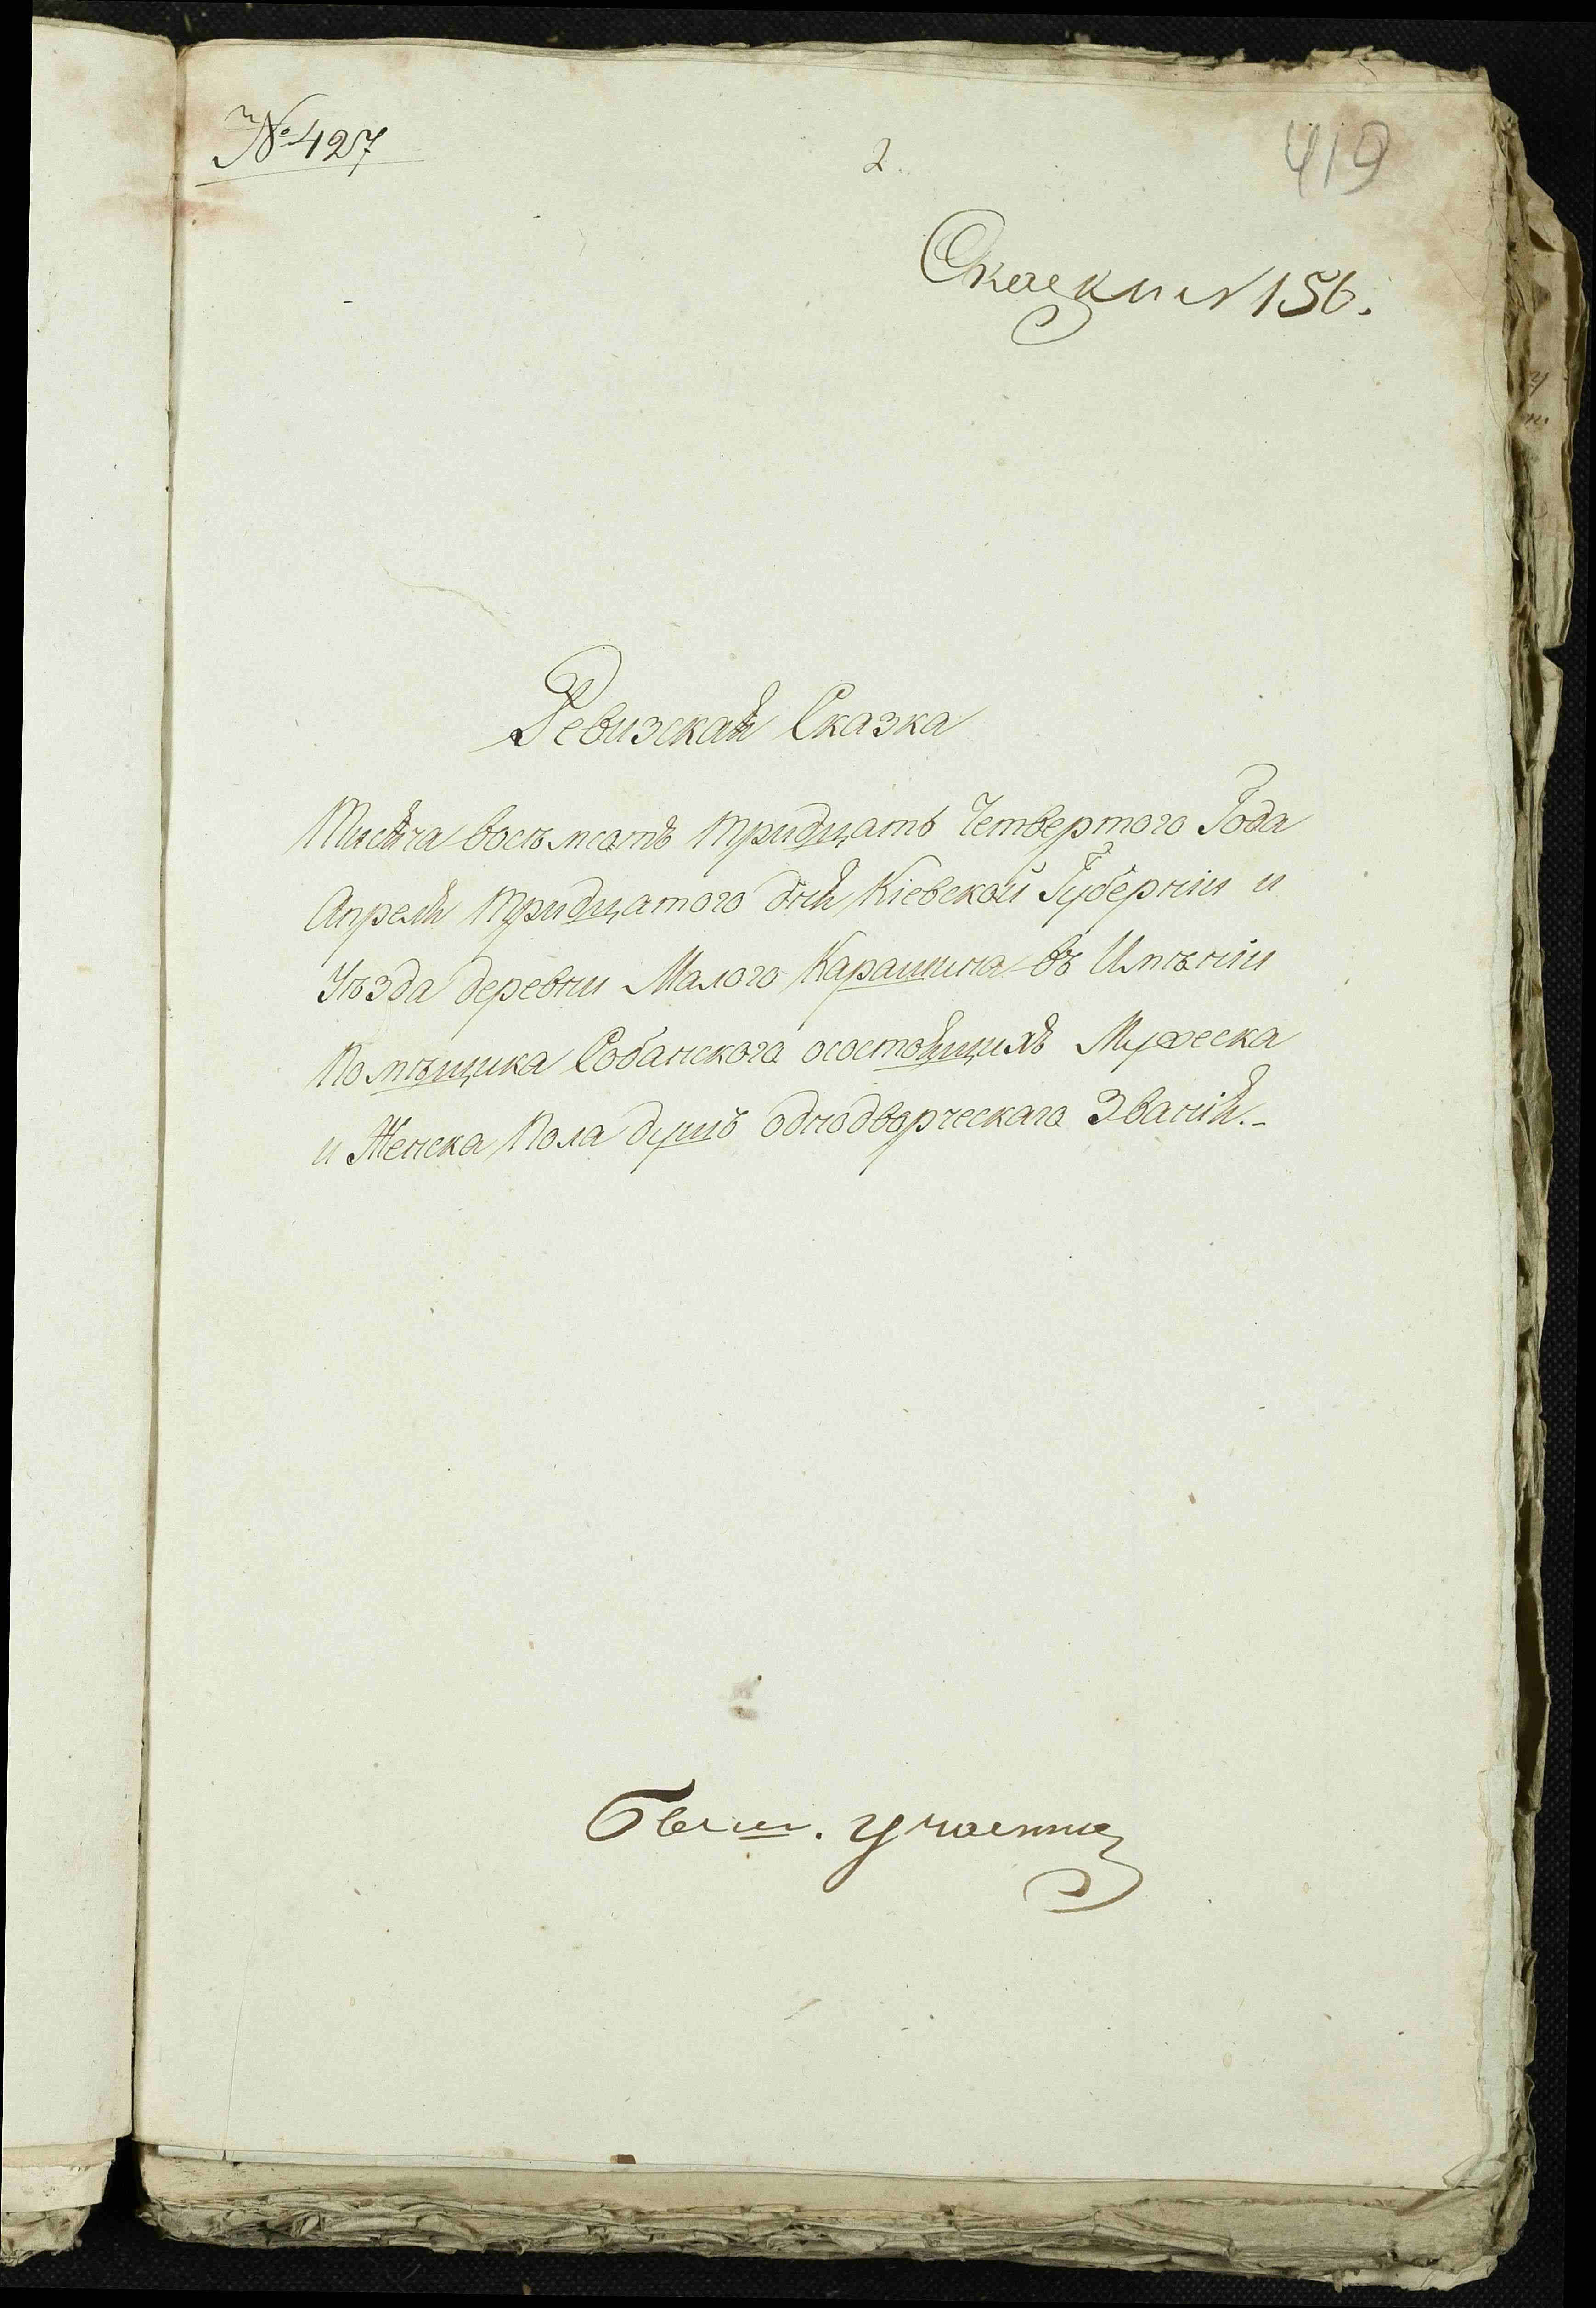 № 427
2.
419
Сказки № 156.
Ревизская Сказка
Тисяча восѣмсотъ тридцать Четвертого Года
Апреля тридцатого дня Кіевской Губерніи и
Уѣзда деревни Малого Карашина въ Имѣніи
Помѣщика Собанского осостоящихъ Мужеска
и Женска Пола душъ однодворческаго Званія.-